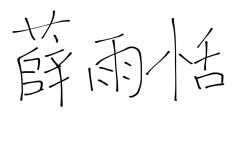 薛雨恬